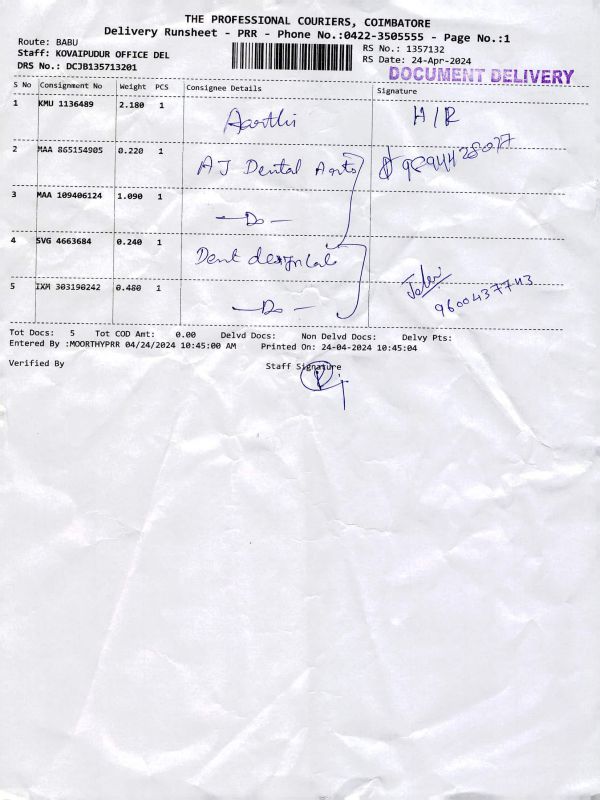 THE PROFESSIONAL COURIERS, COIMBATORE
Delivery Runsheet - PRR - Phone No.:0422-3505555 - Page No.:1
Route: BABU
Staff: KOVAIPUDUR OFFICE DEL
DRS No.: DCJB135713201
RS No.: 1357132
RS Date: 24-Apr-2024
DOCUMENT DELIVERY
S No Consignment No Weight PCS Consignee Details Signature
1 KMU 1136489 2.180 1 Aarthi H/R
2 MAA 865154905 0.220 1 AJ Dental Arts
3 MAA 109406124 1.090 1 — Do —
4 SVG 4663684 0.240 1 Dent design lab
5 IXM 303190242 0.480 1 — Do — 9600437743
Tot Docs: 5 Tot COD Amt: 0.00 Delvd Docs: Non Delvd Docs: Delvy Pts:
Entered By :MOORTHYPRR 04/24/2024 10:45:00 AM Printed On: 24-04-2024 10:45:04
Verified By Staff Signature